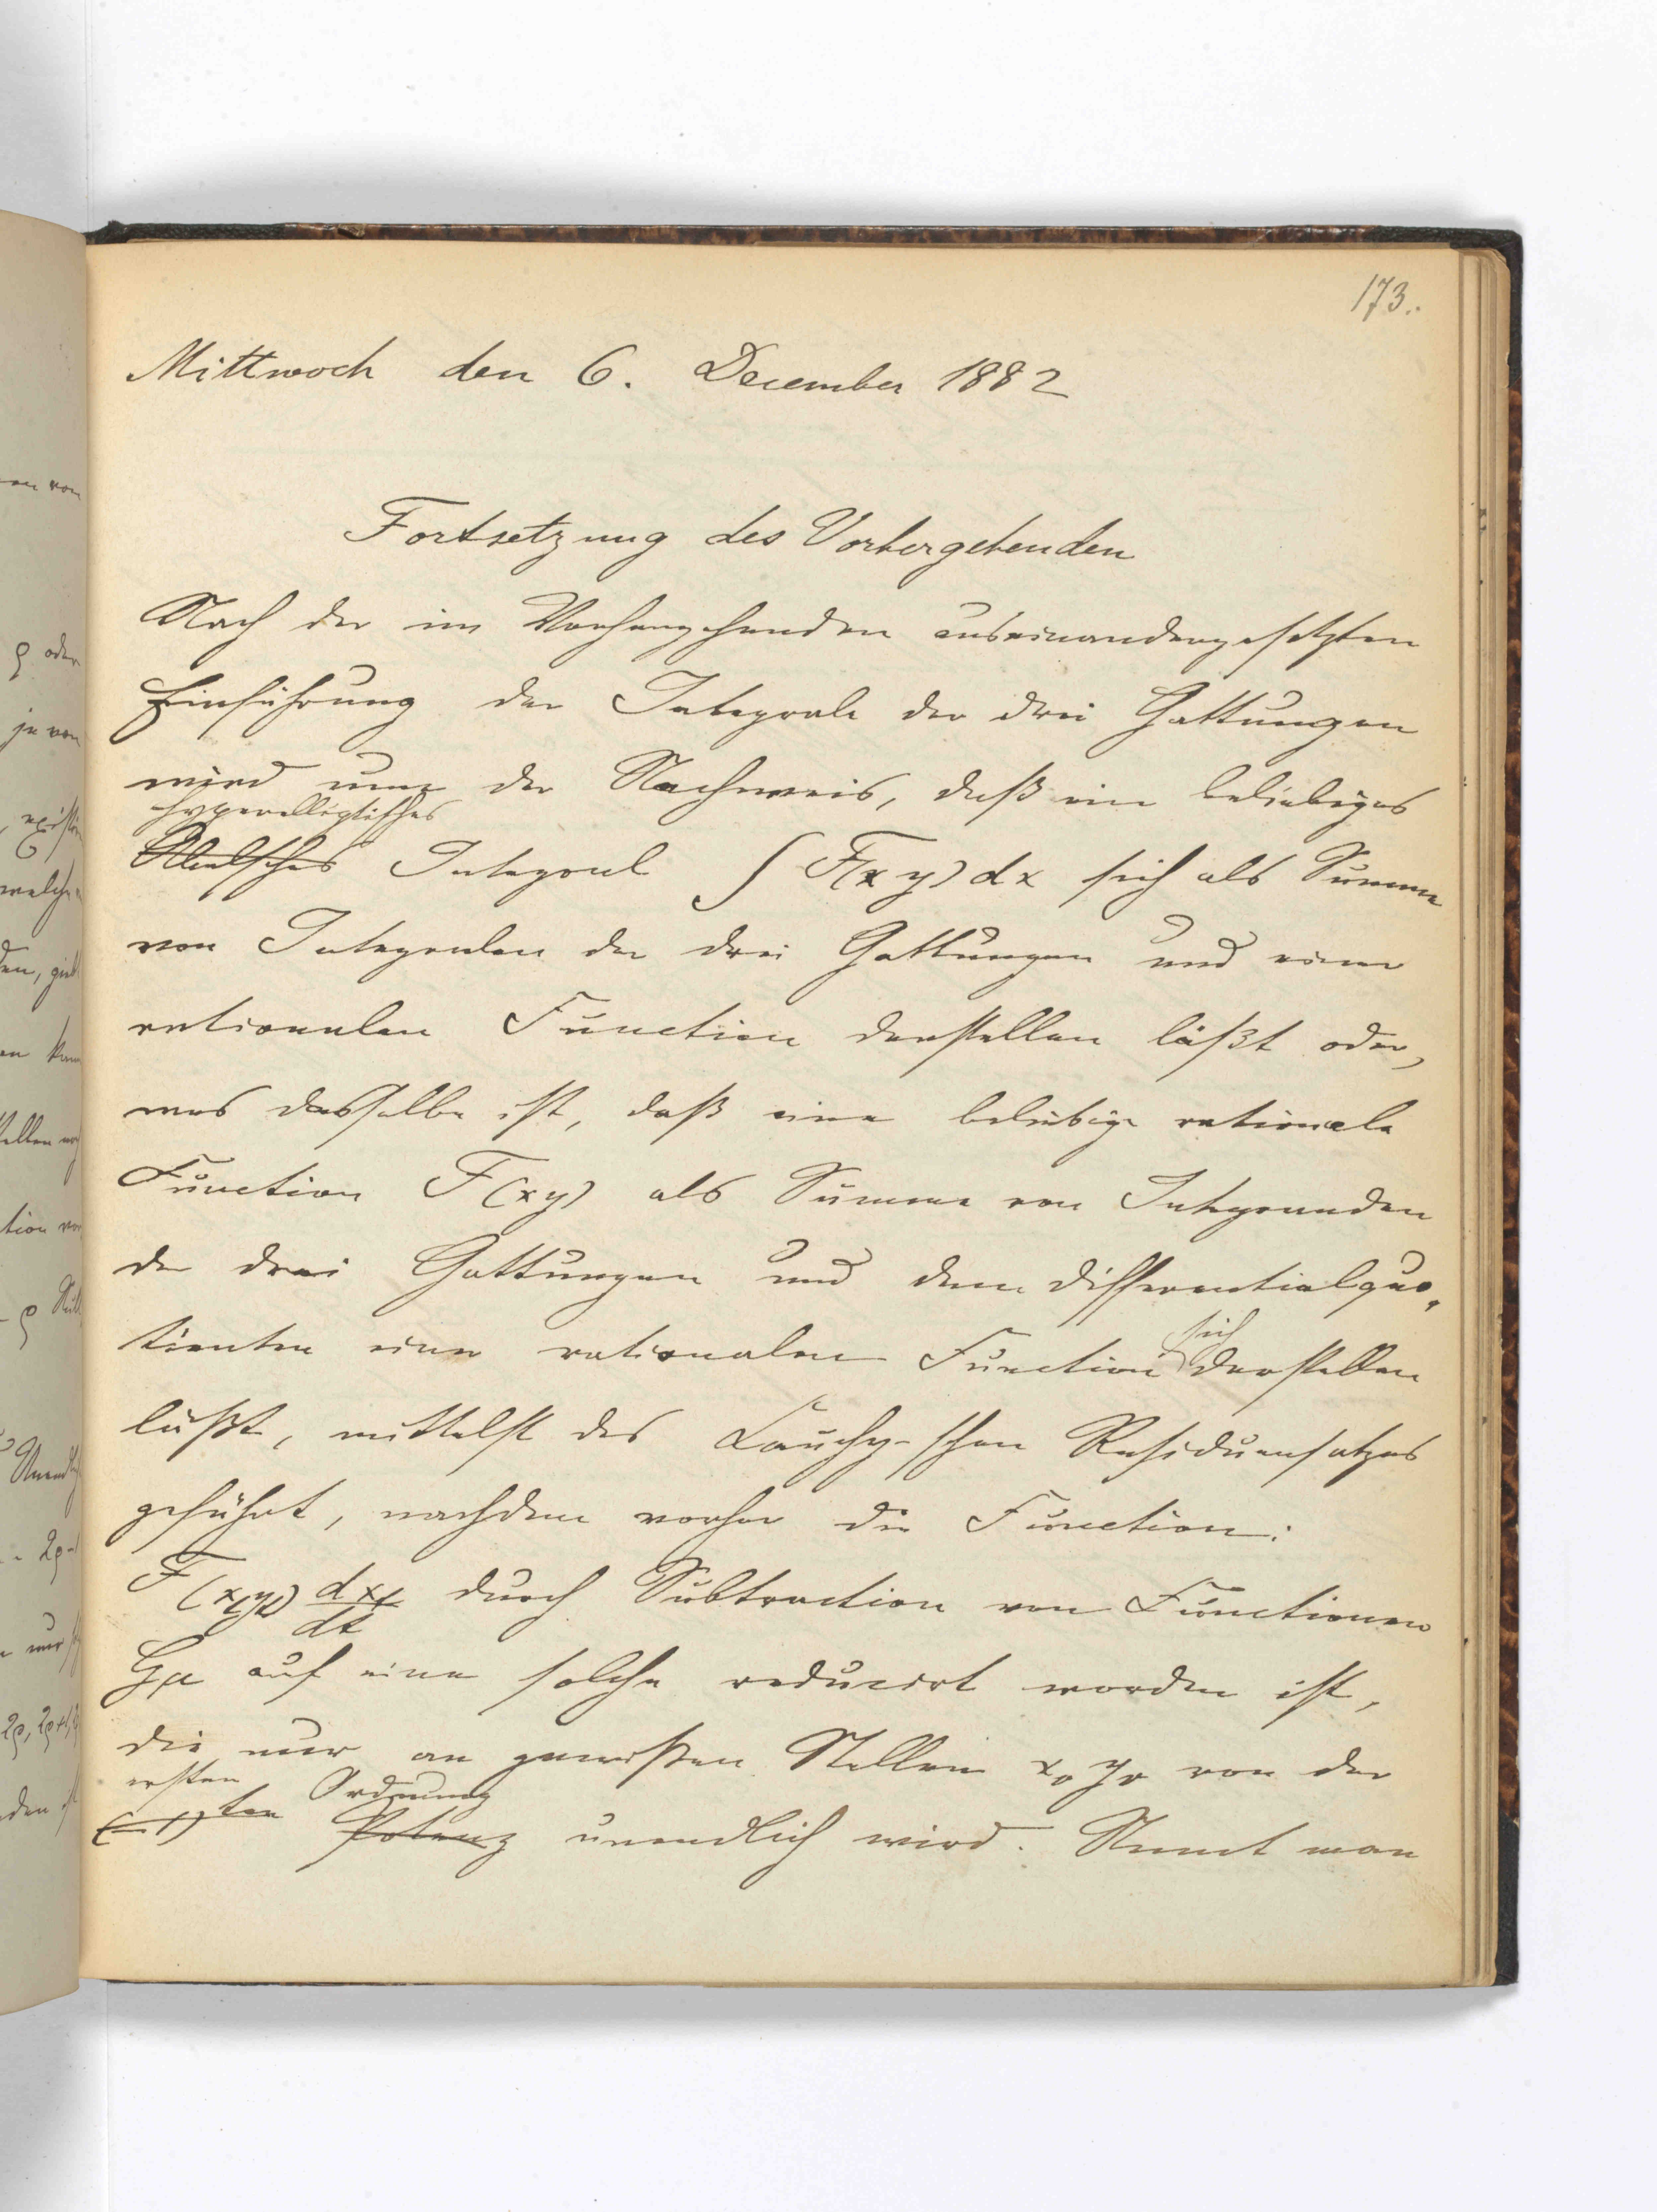 173.
Mittwoch den 6. December 1882
Fortsetzung des Vorhergehenden
Nach der im Vorhergehenden auseinandergesetzten
Einführung der Integrale der drei Gattungen
wird nun der Nachweis, daß ein beliebiges
hyperelliptisches
Abelsches Integral ∫ F(x y) dx sich als Summe
von Integralen der drei Gattungen und einer
rationalen Function darstellen läßt oder,
was dasselbe ist, daß eine beliebige rationale
Function F(xy) als Summe von Integranden
der drei Gattungen und dem Differentialquo-
tienten einer rationalen Function sich darstellen
läßt, mittelst des Cauchy-schen Residuensatzes
geführt, nachdem vorher die Function:
F(x_t y_t) dx_t/dt durch Subtraction von Functionen
Gμ auf eine solche reducirt worden ist,
die nur an gewissen Stellen x₀ y₀ von der
ersten Ordnung
(-1)ten Potenz unendlich wird. Nennt man
oder
je von
welche